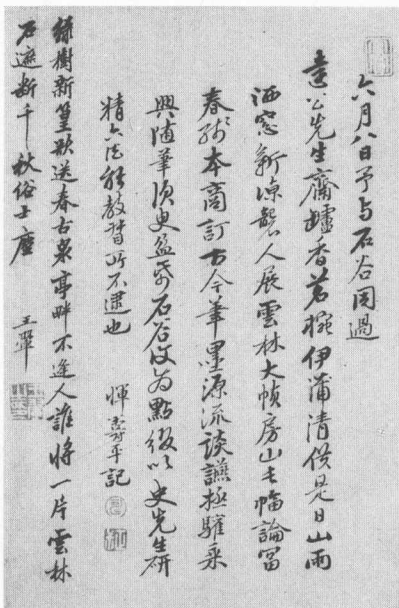 六月八日予与石谷同過
達公先生齋罏香茗椀伊蒲清供是日山雨
洒窓新涼襲人展雲林大幀房山長幅論冨
春殘本商訂古今筆墨源流談讌極驩乘
興隨筆須史盈帋石谷仅为點綴以史先生研
精六法能教督所不逮也
惲壽平記
綠樹新篁欲送春古泉亭畔不逢人誰將一片雲林
石遮斷千秋俗士塵
王翬